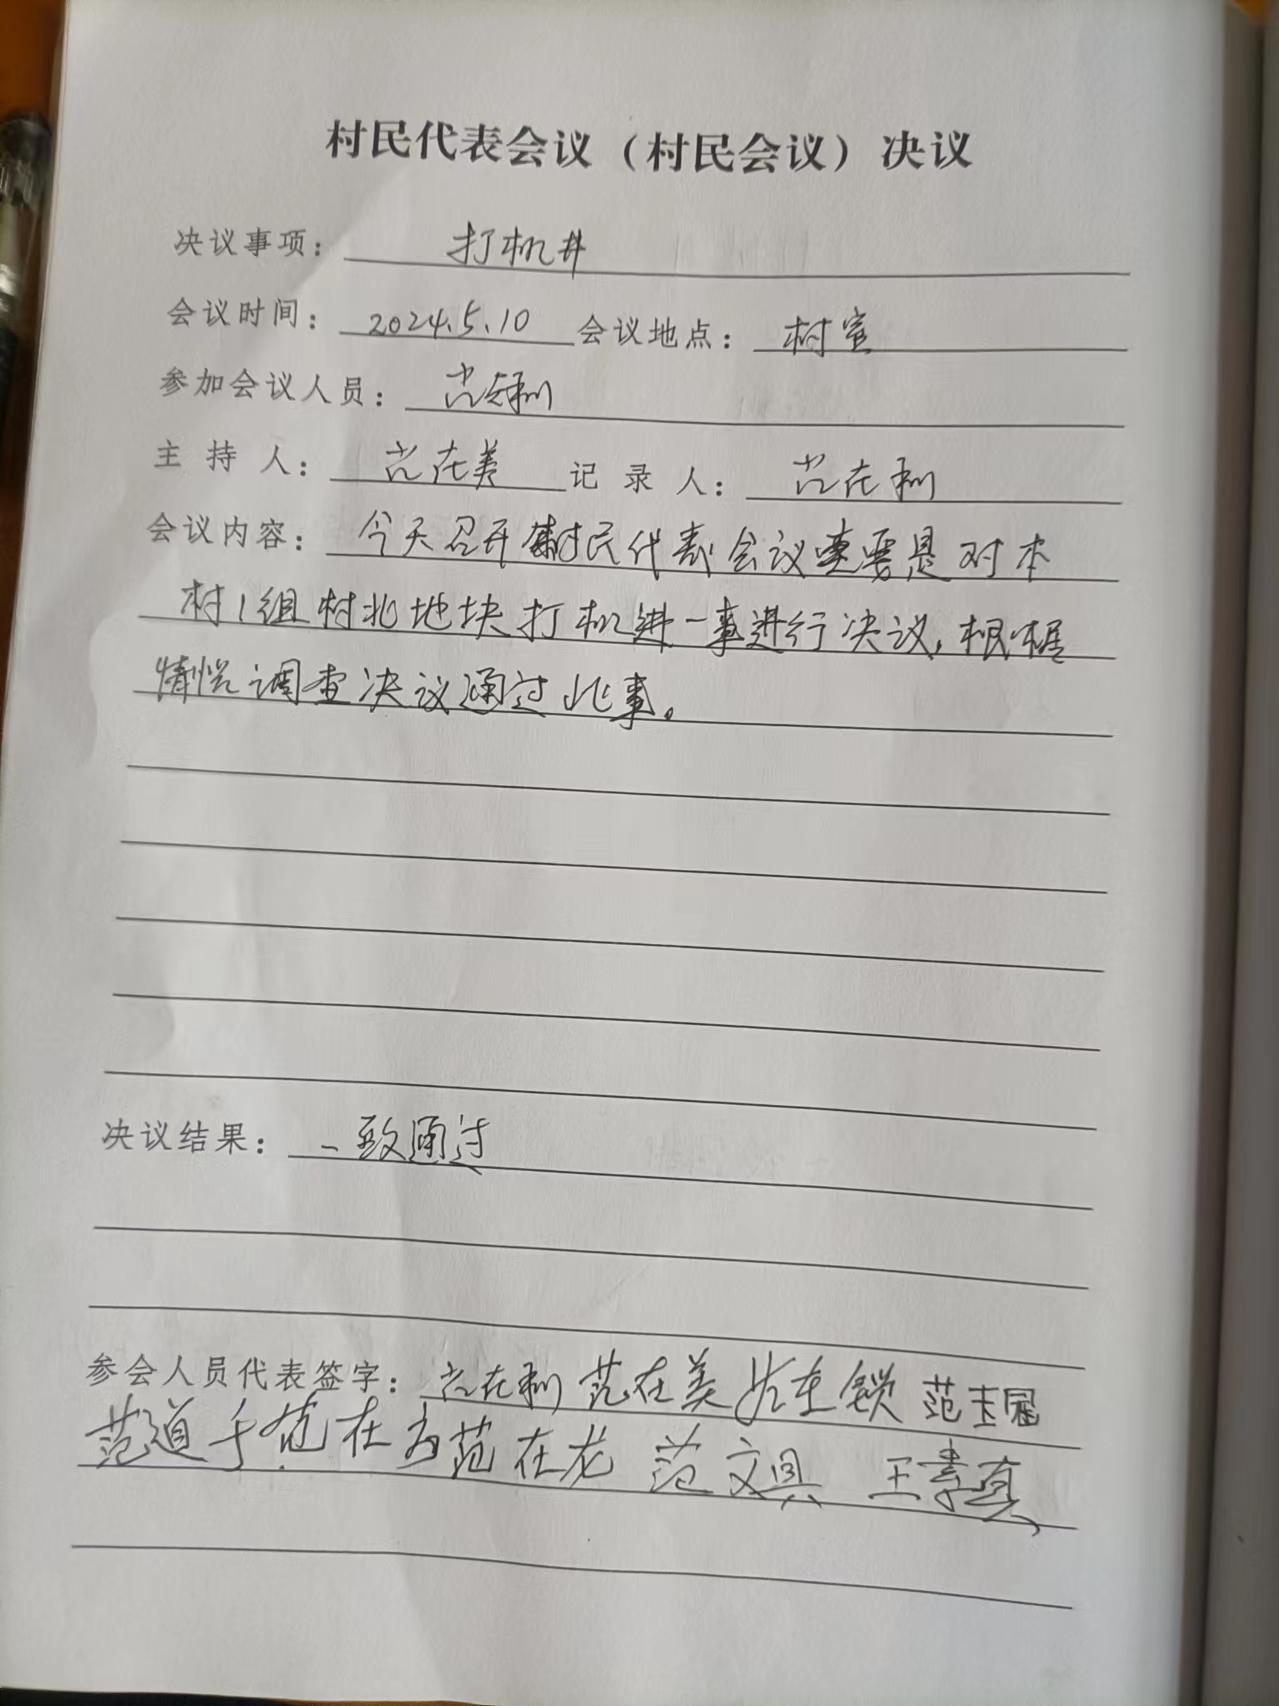 村民代表会议（村民会议）决议
决议事项：打机井
会议时间：2024.5.10 会议地点：村室
参加会议人员：
主持人：范在美 记录人：范在利
会议内容：今天召开村民代表会议主要是对本
村1组村北地块打机井一事进行决议，根据
情况调查决议通过此事。
决议结果：一致通过
参会人员代表签字：范在利 范在美 范在锁 范玉冠
范道千 范在为 范在龙 范文具 王素真